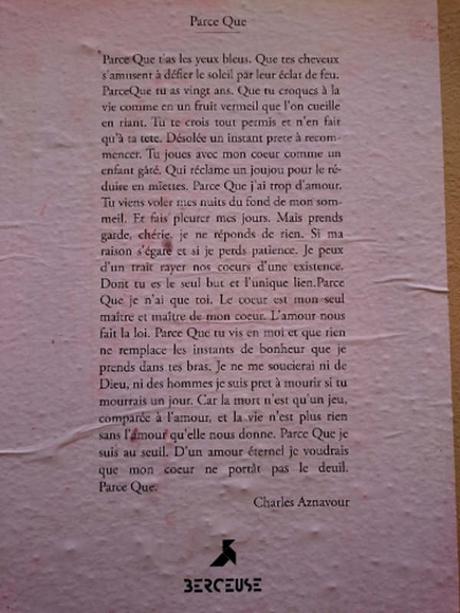 Parce Que
Parce Que t'as les yeux bleus. Que tes cheveux
s'amusent à défier le soleil par leur éclat de feu.
ParceQue tu as vingt ans. Que tu croques à la
vie comme en un fruit vermeil que l'on cueille
en riant. Tu te crois tout permis et n'en fait
qu'à ta tete. Désolée un instant prete à recom-
mencer. Tu joues avec mon coeur comme un
enfant gâté. Qui réclame un joujou pour le ré-
duise en miettes. Parce Que j'ai trop d'amour.
Tu viens voler mes nuits du fond de mon som-
meil. Et fais pleurer mes jours. Mais prends
garde, chérie, je ne réponds de rien. Si ma
raison s'égare et si je perds patience. Je peux
d'un trait rayer nos coeurs d'une existence.
Dont tu es le seul but et l'unique lien.Parce
Que je n'ai que toi. Le coeur est mon seul
maître et maître de mon coeur. L'amour nous
fait la loi. Parce Que tu vis en moi et que rien
ne remplace les instants de bonheur que je
prends dans tes bras. Je ne me soucierai ni de
Dieu, ni des hommes je suis pret à mourir si tu
mourrais un jour. Car la mort n'est qu'un jeu,
comparée à l'amour, et la vie n'est plus rien
sans l'amour qu'elle nous donne. Parce Que je
suis au seuil. D'un amour éternel je voudrais
que mon coeur ne portât pas le deuil.
Parce Que.
Charles Aznavour
BERCEUSE